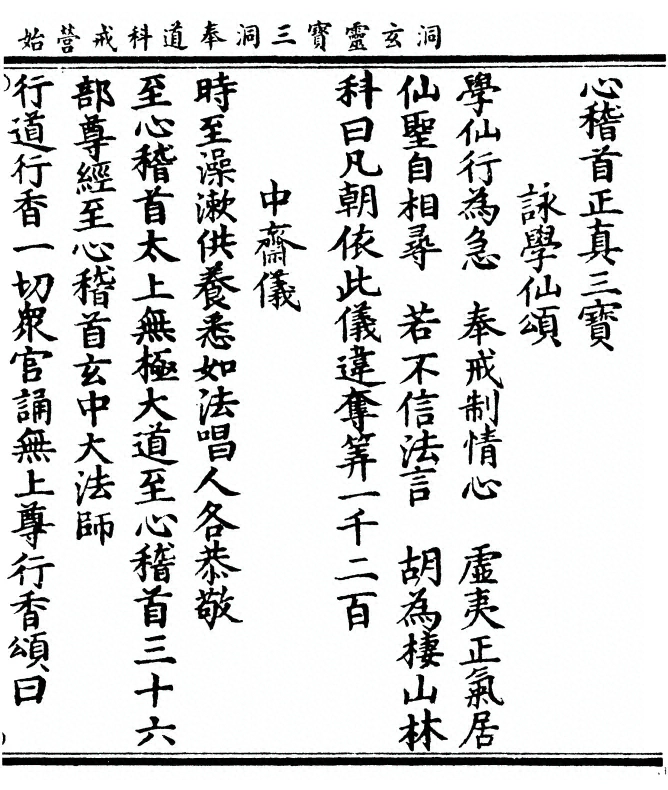 洞玄靈寶三洞奉道科戒營始
心稽首正真三寶
詠學仙頌
學仙行為急　奉戒制情心　虛夷正氣居
仙聖自相尋　若不信法言　胡為棲山林
科曰凡朝依此儀違奪筭一千二百
中齋儀
時至澡漱供養悉如法唱人各恭敬
至心稽首太上無極大道至心稽首三十六
部尊經至心稽首玄中大法師
行道行香一切眾官誦無上尊行香頌曰